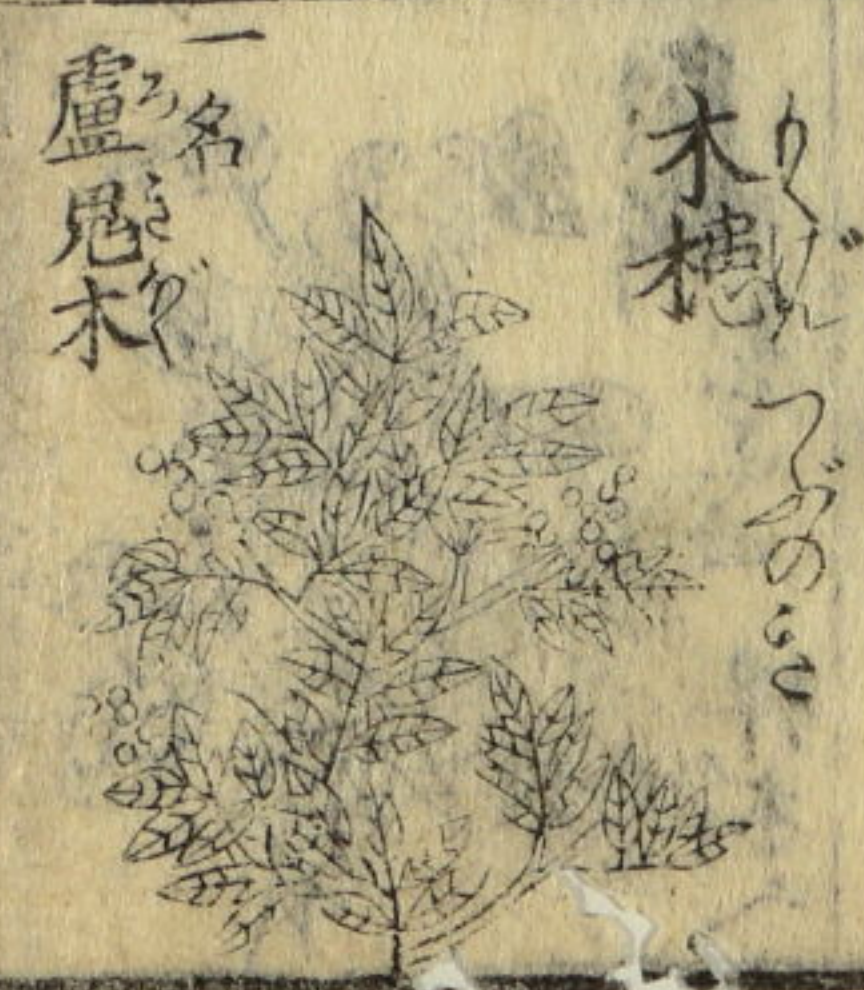 木槵
もくげん
つぶのき
一名
盧鬼木
ろきぼく